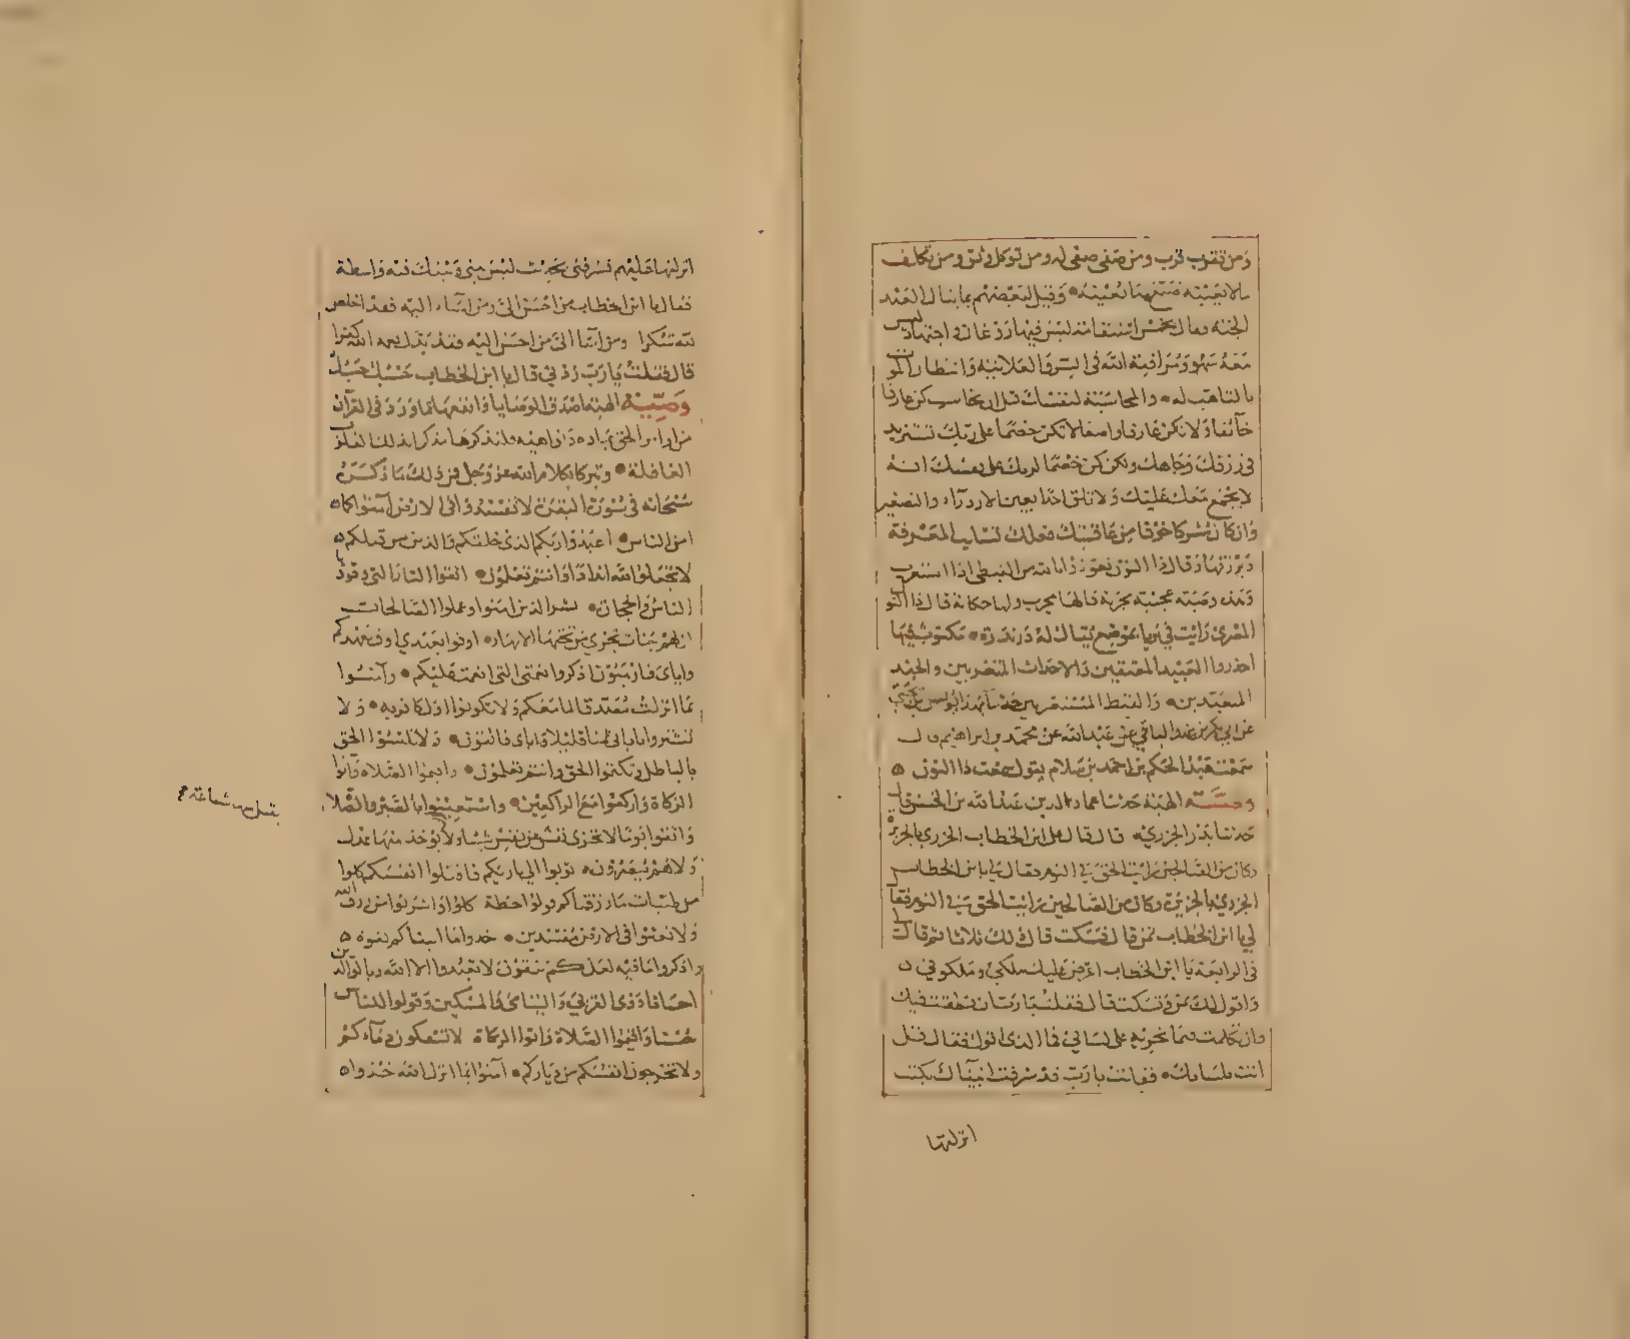 ومن تقرب قرب ومن صفى صفي له ومن توكل وثق ومن تكلف
ما لا يعنيه ضيع ما يعنيه وقيل لبعضهم بما ينال العبد
الجنة فقال بخمس استقامة ليس فيها روغان واجتهاد ليس
معه سهو ومراقبة الله في السر والعلانية وانتظار الموت
بالتاهب له والمحاسبة لنفسك قبل ان تحاسب كن عارفا
خائفا ولا تكن عارفا واصفا لا تكن خصما على ربك تستزيد
في رزقك وجاهك ولكن كن خصما لربك على نفسك انه
لا يجتمع معك عليك ولا تلق احدا بعين الازدراء والتصغير
وان كان مشركا خوفا من عاقبتك فلعلك تسلب المعرفة
ويرزقها وقال ذا النون تعوذوا بالله من النبطي اذا استعرب
وهذه وصية عجيبة مجربة قالها مجرب ولها حكاية قال ذا النون
المصري رايت في بربا بموضع يقال له دندرة مكتوب فيها
احذروا العبيد المعتقين والاحداث المتغربين والجند
المتعبدين والقبط المستعربين حدثنا بهذا يونس بن يحيى
عن ابي بكر بن عبد الباقي عن عبد الله عن محمد بن ابراهيم قال
سمعت عبد الحكم بن احمد بن سلام يقول سمعت ذا النون
وصية الهية حدثنا عماد الدين عبد الله بن الحسن قال
حدثنا بدر الجزري قال قال علي ابن الخطاب الجزري بالجزيرة
وكان من الصالحين رايت الحق في النوم فقال لي يا ابن الخطاب
الجزري بالجزيرة وكان من الصالحين رايت الحق في النوم فقال
لي يا ابن الخطاب تمن قال فسكت قال ذلك ثلاثا ثم قال
في الرابعة يا ابن الخطاب اعرض عليك ملكي وملكوتي
واقول لك تمن وتسكت قال فقلت يا رب ان نطقت فبك
وان تكلمت فبما تجريه على لساني فما الذي اقول فقال قل
انت بلسانك فقلت يا رب قد شرفت انبياك بكتب
انزلتها
انزلتها عليهم فشرفني بحديث ليس بيني وبينك فيه واسطة
فقال يا ابن الخطاب من احسن الى من اساء اليه فقد اخلص
لله شكرا ومن اسا الى من احسن اليه فقد بدل نعمة الله كفرا
قال فقلت يا رب زدني قال يا ابن الخطاب حسبك حسبك
وصية الهية اصدق الوصايا وانفعها ما ورد في القرآن
من اوامر الحق عباده ونواهيه فلنذكرها تذكرا بذلك القلوب
الغافلة وتبركا بكلام الله عز وجل فمن ذلك ما ذكره
سبحانه في سورة البقرة لا تفسدوا في الارض آمنوا كما
امن الناس اعبدوا ربكم الذي خلقكم والذين من قبلكم
لا تجعلوا لله اندادا وانتم تعلمون اتقوا النار التي وقودها
الناس والحجارة بشر الذين امنوا وعملوا الصالحات
ان لهم جنات تجري من تحتها الانهار اوفوا بعهدي اوف بعهدكم
واياى فارهبون اذكروا نعمتي التي انعمت عليكم وآمنوا
بما انزلت مصدقا لما معكم ولا تكونوا اول كافر به ولا
تشتروا باياتي ثمنا قليلا واياى فاتقون ولا تلبسوا الحق
بالباطل وتكتموا الحق وانتم تعلمون واقيموا الصلاة واتوا
الزكاة واركعوا مع الراكعين واستعينوا بالصبر والصلاة
واتقوا يوما لا تجزى نفس عن نفس شيئا ولا يؤخذ منها عدل
ولا هم ينصرون توبوا الى بارئكم فاقتلوا انفسكم كلوا
من طيبات ما رزقناكم قولوا حطة كلوا واشربوا من رزق الله
ولا تعثوا في الارض مفسدين خذوا ما اتيناكم بقوة
واذكروا ما فيه لعلكم تتقون لا تعبدوا الا الله وبالوالدين
احسانا وذى القربى واليتامى والمسكين وقولوا للناس
حسنا واقيموا الصلاة واتوا الزكاة لا تسفكون دماءكم
ولا تخرجون انفسكم من دياركم آمنوا بما انزل الله خذوا